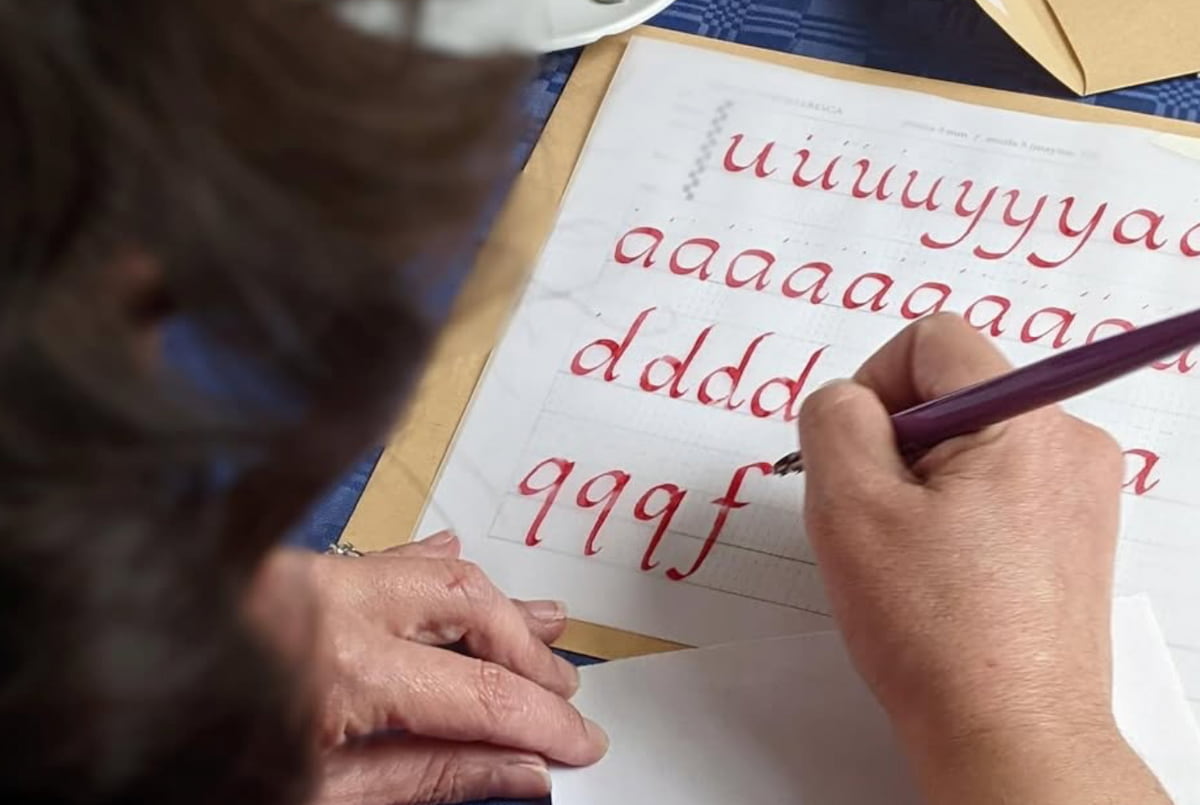 u u u u y y y a a
a a a a a a a a a a
d d d d a
q q q f